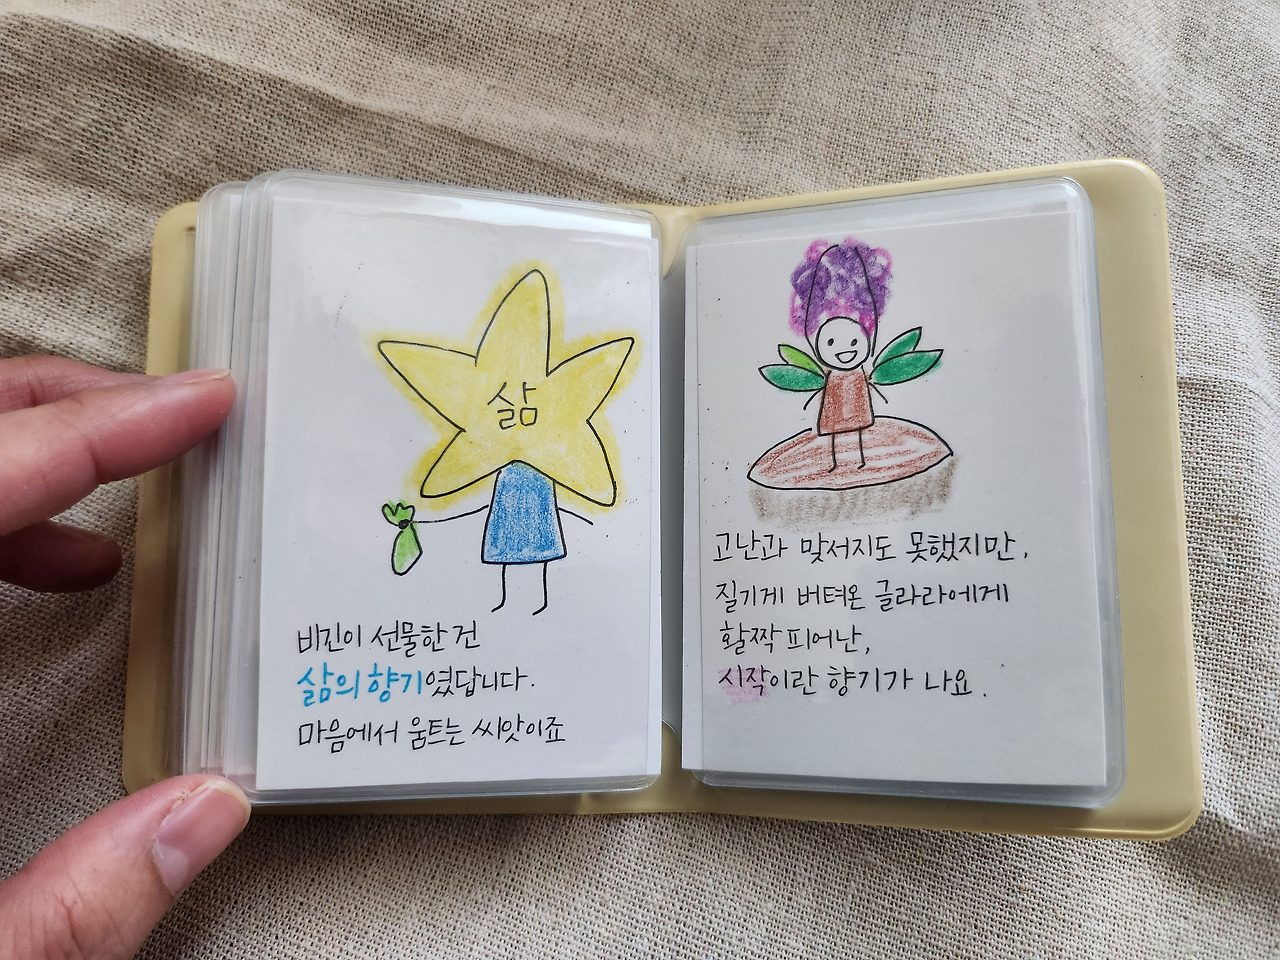 삶
비진이 선물한 건
삶의 향기였답니다.
마음에서 움트는 씨앗이죠
고난과 맞서지도 못했지만,
질기게 버텨온 글라라에게
활짝 피어난,
시작이란 향기가 나요.